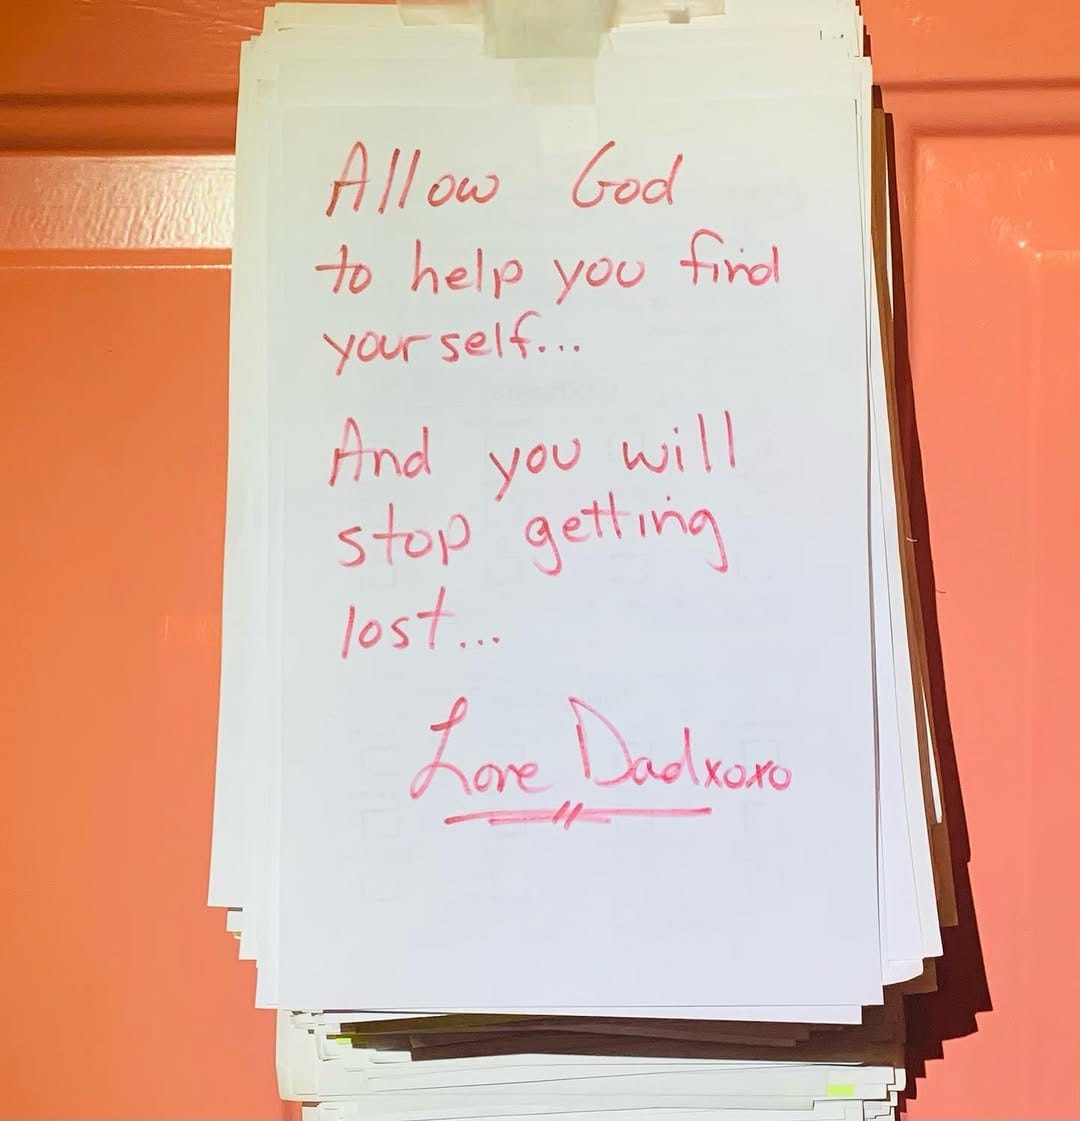 Allow God
to help you find
yourself...
And you will
stop getting
lost...
Love Dad xoxo